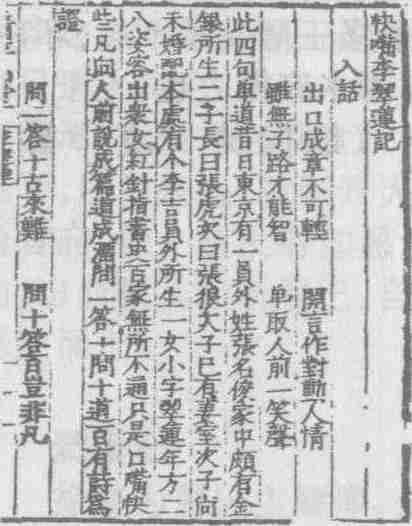 快嘴李翠蓮記
入話
出口成章不可輕　開言作對動人情
雖無子路才能智　单取人前一笑聲
此四句單道昔日東京有一員外姓張名俊家中頗有金
銀所生二子長曰張虎次曰張狼大子已有妻室次子尚
未婚配本處有个李吉員外所生一女小字翠蓮年方二
八姿容出衆女紅針指書史百家無所不通只是口嘴快
些凡向人前說成篇道成溜問一答十問十道百有詩為
證
問一答十古來難　問十答百豈非凡